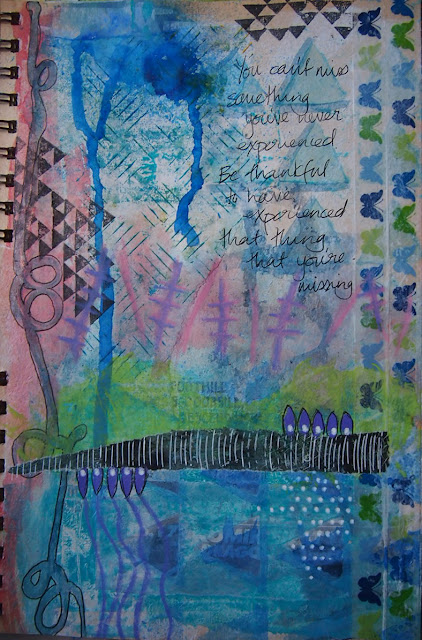 You can't miss
something
you've never
experienced
Be thankful
to have
experienced
that thing
that you're
missing
FOOTHILL